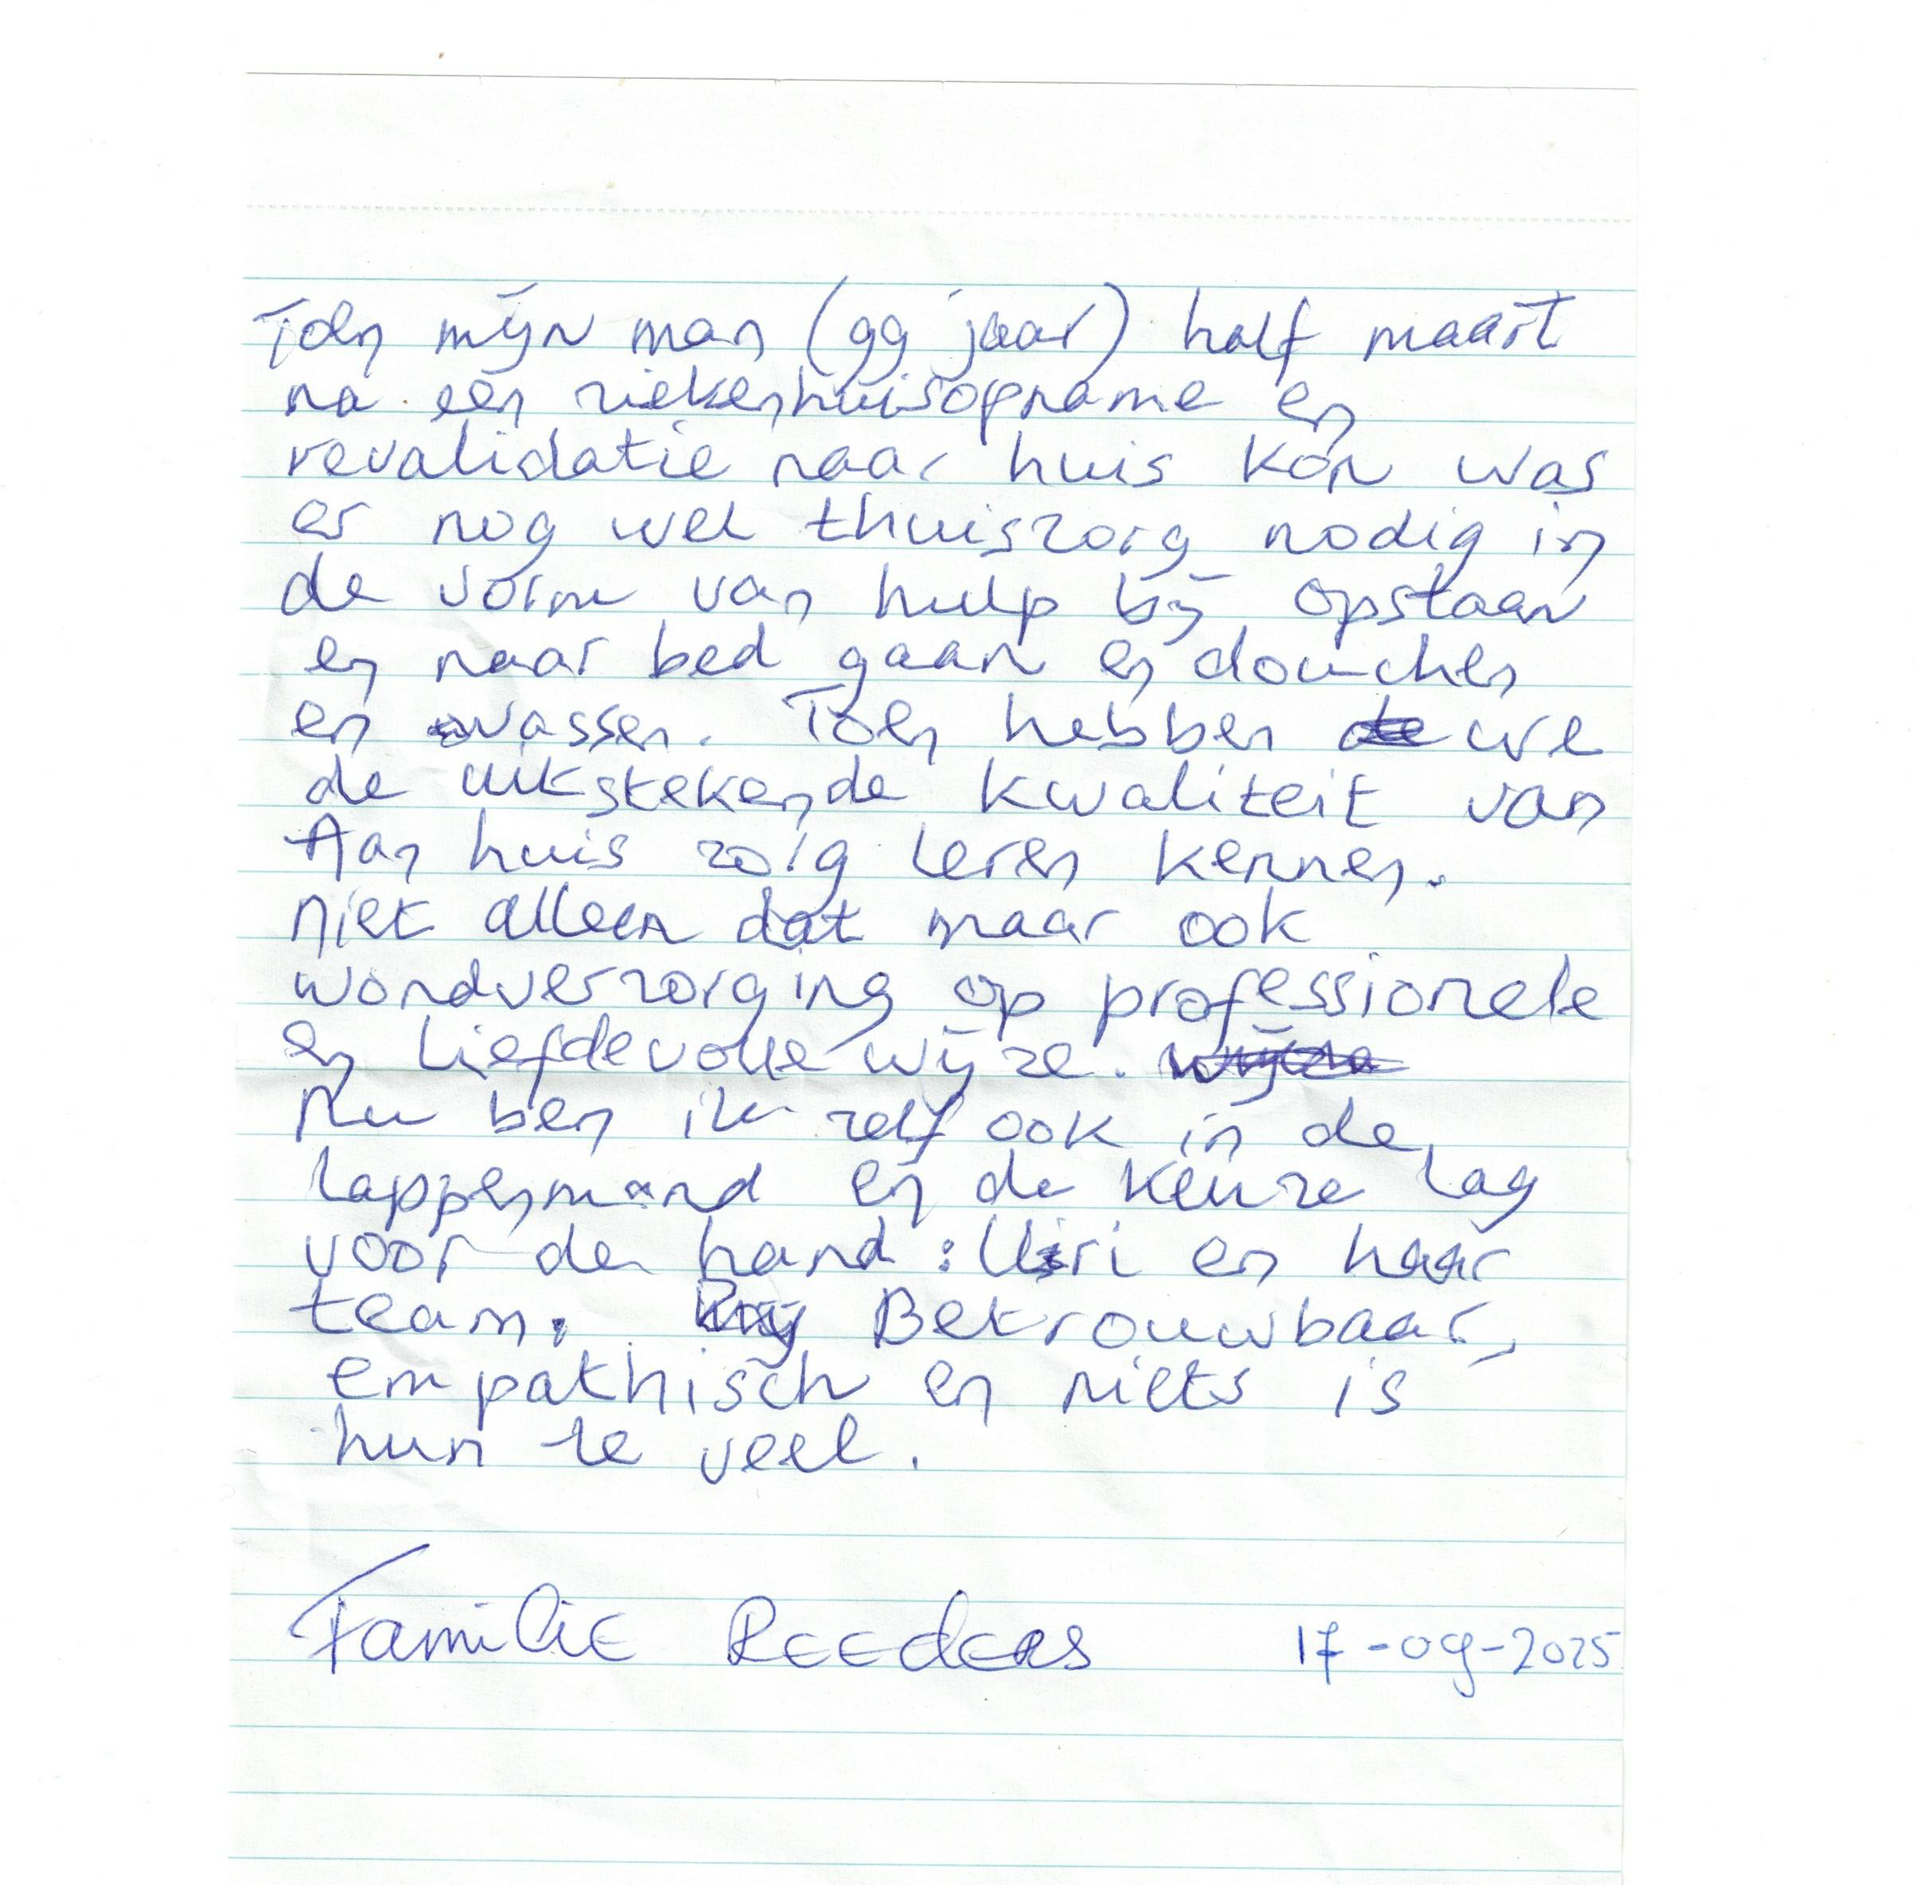 Toen mijn man (99 jaar) half maart
na een ziekenhuisopname en
revalidatie naar huis kon was
er nog wel thuiszorg nodig in
de vorm van hulp bij opstaan
en naar bed gaan en douchen
en wassen. Toen hebben we
de uitstekende kwaliteit van
Aan huis zorg leren kennen.
Niet alleen dat maar ook
wondverzorging op professionele
en liefdevolle wijze.
Nu ben ik zelf ook in de
lappenmand en de keuze lag
voor de hand: en haar
team. Betrouwbaar,
empathisch en niets is
hun te veel.
Familie Reeders 17-09-2025